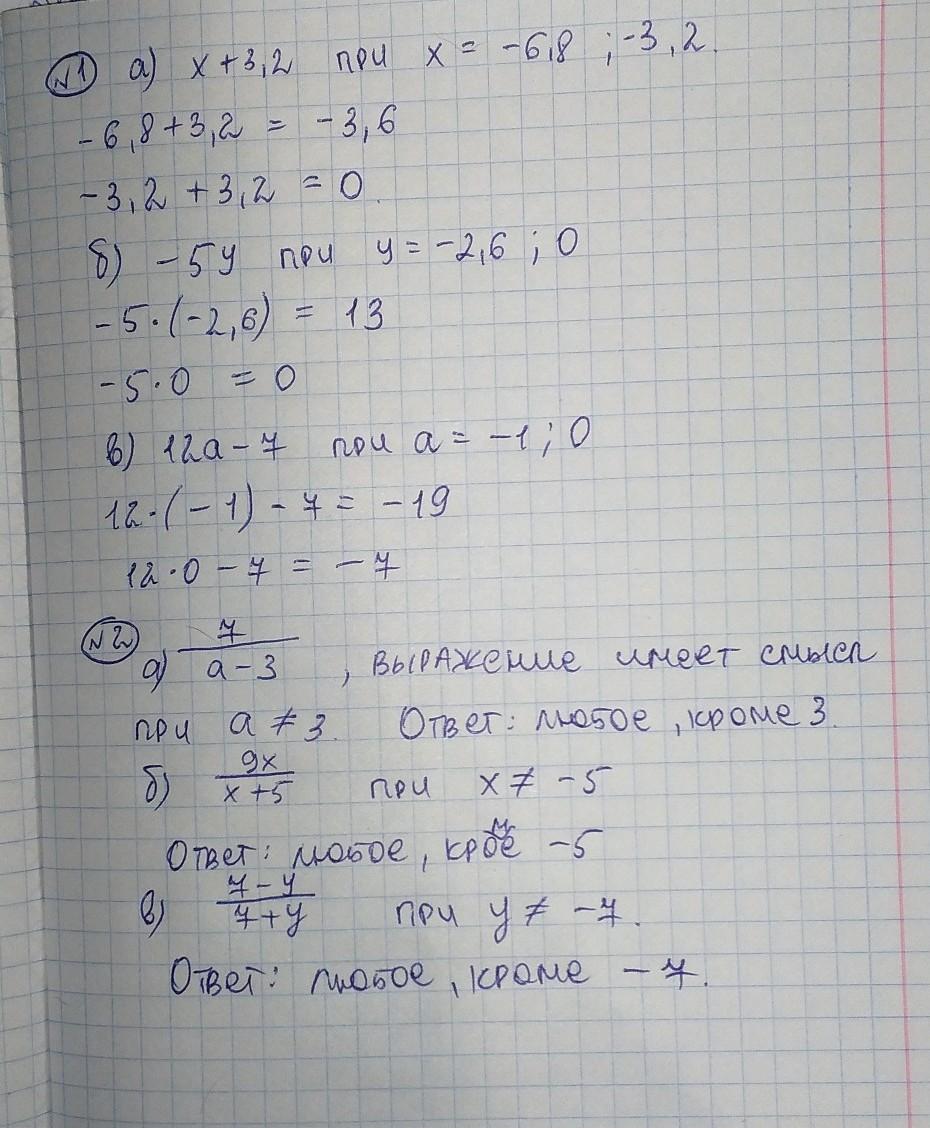 №1 а) x+3,2 при x = -6,8 ; -3,2.
-6,8+3,2 = -3,6
-3,2 +3,2 = 0.
б) -5y при y = -2,6 ; 0
-5·(-2,6) = 13
-5·0 = 0
в) 12a-7 при a = -1 ; 0
12·(-1) - 7 = -19
12·0 - 7 = -7
№2 а) 7/(a-3) , выражение имеет смысл
при a ≠ 3. Ответ: любое, кроме 3.
б) 9x/(x+5) при x ≠ -5
Ответ: любое, кроме -5
в) (7-y)/(7+y) при y ≠ -7.
Ответ: любое, кроме -7.